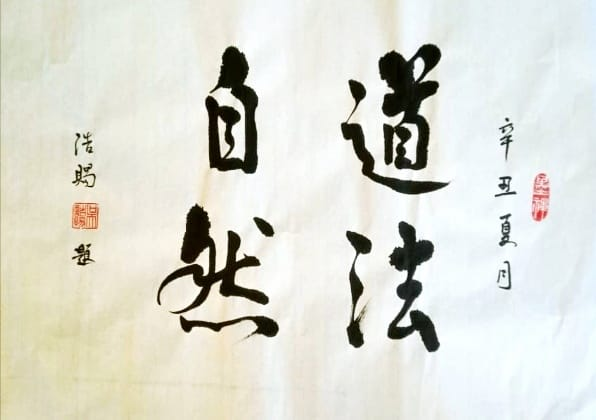 辛丑夏月
道法
自然
浩賜
題